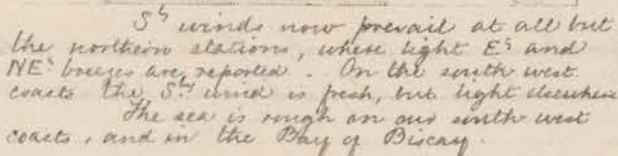 Sly winds now prevail at all but
the northern stations, where light Ely and
NEly breezes are reported. On the south west
coasts the Sly wind is fresh, but light elsewhere
The sea is rough on our south west
coasts, and in the Bay of Biscay.